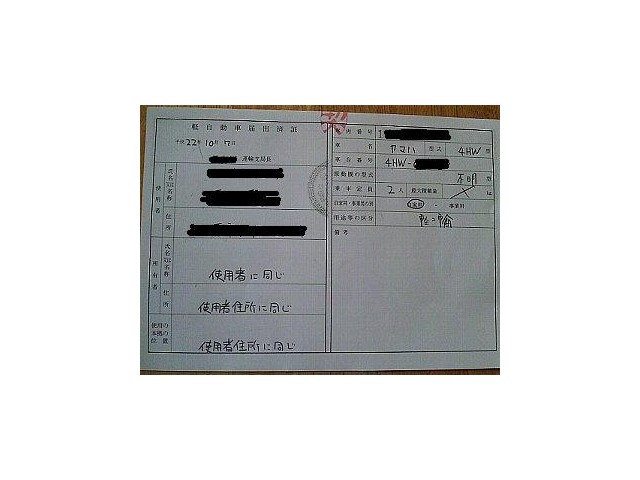 軽自動車届出済証
平成22年10月7日
運輸支局長
使用者
氏名又は名称
住所
所有者
氏名又は名称
使用者に同じ
住所
使用者住所に同じ
使用の本拠の位置
使用者住所に同じ
車両番号 1
車名 ヤマハ 型式 4HW 型
車台番号 4HW-
原動機の型式 不明 型
乗車定員 2人 最大積載量 kg
自家用・事業用の別 自家用 ・ 事業用
用途等の区分 軽二輪
備考